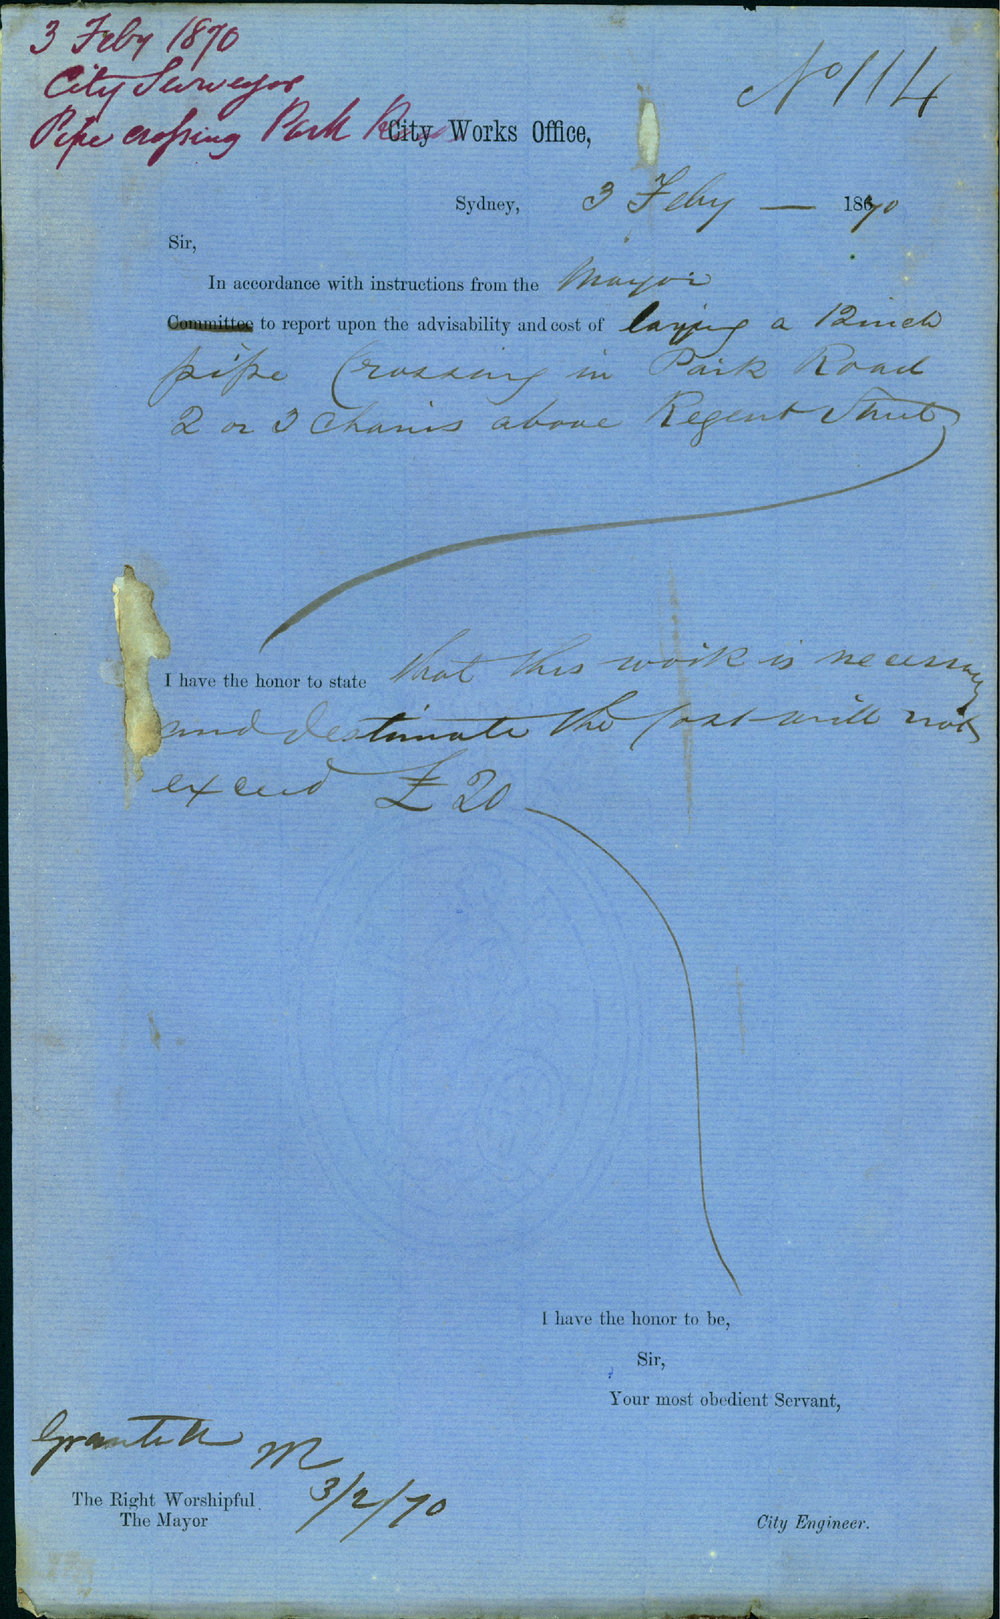 3 Feby 1870
City Surveyor
Pipe crossing Park
No 114
City Works Office,
Sydney, 3 Feby — 1870
Sir,
In accordance with instructions from the Mayor
Committee to report upon the advisability and cost of laying a 12 inch
pipe Crossing in Park Road
2 or 3 Chains above Regent Street
I have the honor to state that this work is necessary
and I estimate the Cost will not
exceed £20
I have the honor to be,
Sir,
Your most obedient Servant,
Granted
M
3/2/70
The Right Worshipful
The Mayor
City Engineer.